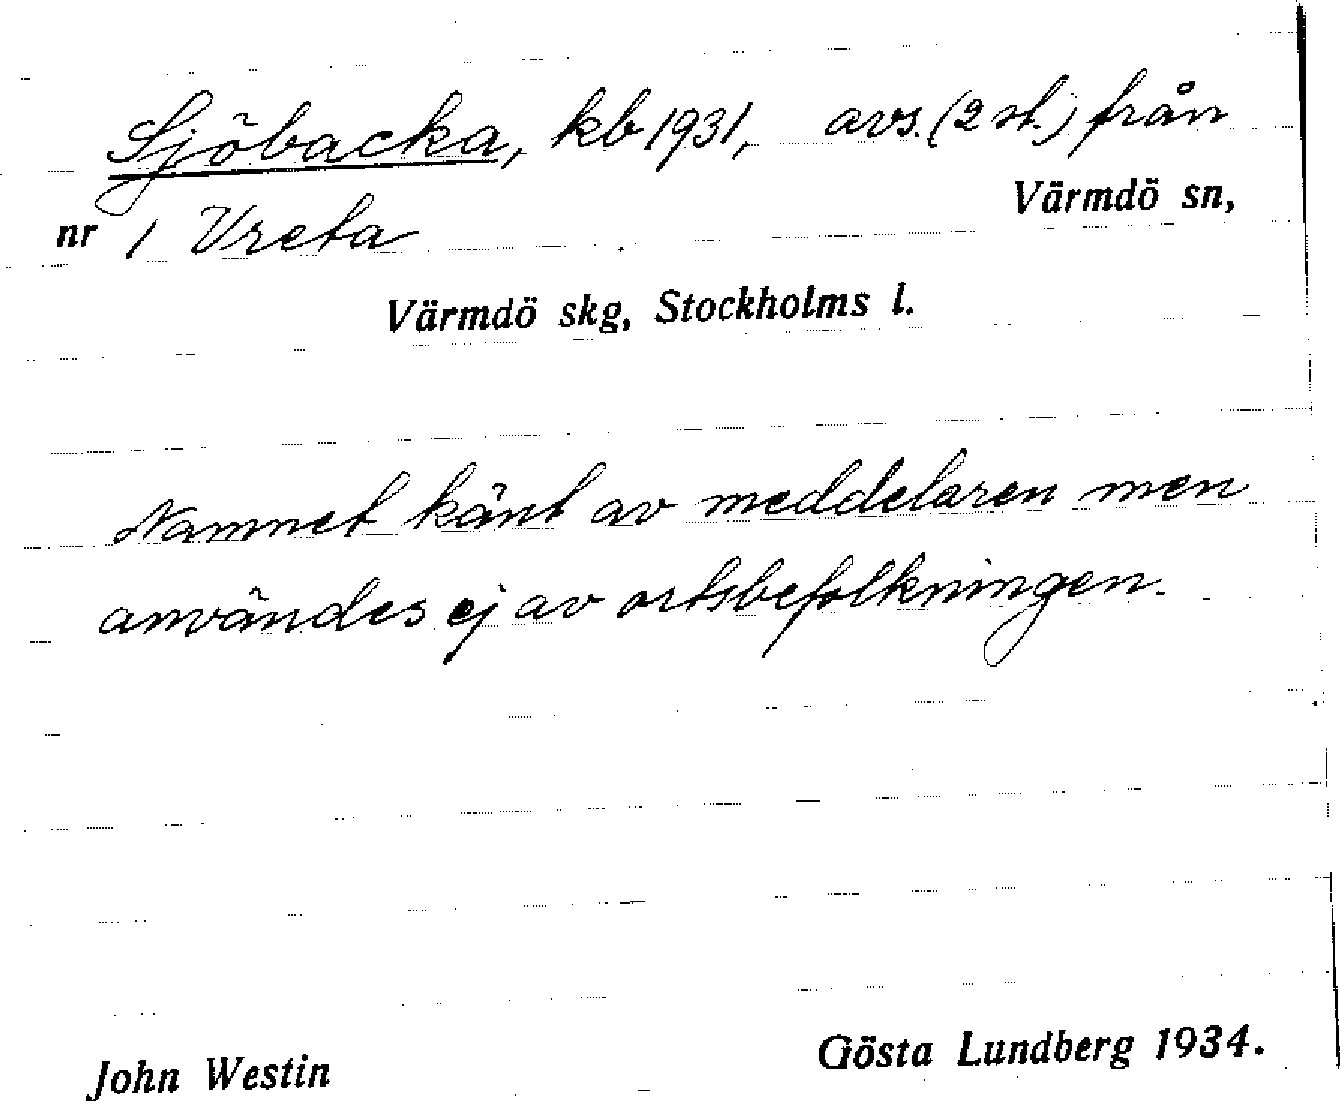 Sjöbacka, kb 1931, avs. (2 st.) från
Värmdö sn,
nr 1 Vreta
Värmdö skg, Stockholms l.
Namnet känt av meddelaren men
användes ej av ortsbefolkningen.
John Westin
Gösta Lundberg 1934.